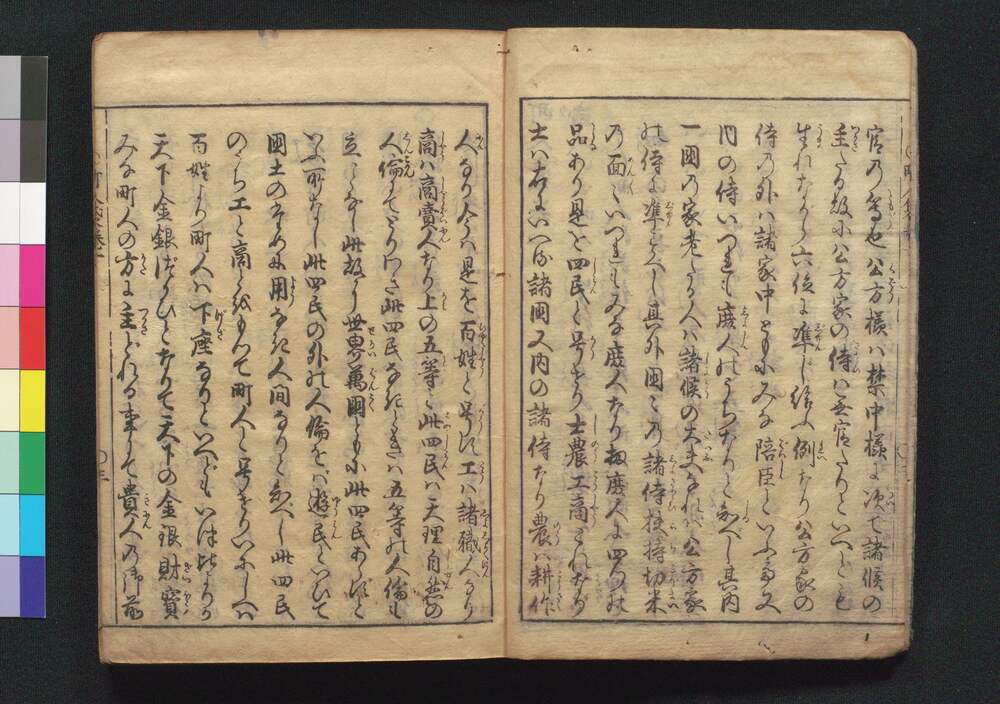 官乃等也公方様ハ禁中様に次て諸候の
主たる故に公方家の侍ハ無官たりといへども
生れながら六位に準じ給ふ例なり公方家の
侍乃外ハ諸家中ともにみな陪臣といふ又
内の侍いづれも庶人のうちなりと知べし其内
一国乃家老たる人ハ諸候の大夫なれバ公方家
の侍に準ずべし其外国々乃諸侍扶持切米
乃面々いづれもみな庶人なり扨庶人に四つの
品あり是を四民と号せり士農工商これなり
士ハ右にいへる諸国又内の諸侍なり農ハ耕作
人なり今ハ是を百姓と号す工ハ諸職人なり
商ハ商賣人なり上の五等と此四民ハ天理自然の
人倫にて此四民なきときハ五等の人倫も
立ことなし此故に世界萬国ともに此四民あらずと
いふ所なし此四民の外の人倫をバ遊民といひて
国土のために用なき人間なりと知べし此四民
のうち工と商とをもつて町人と号せりいにしへハ
百姓より町人ハ下座なりといへどもいつ比よりか
天下金銀づかひとなりて天下の金銀財寳
みな町人の方に主どれる事にて貴人の御前